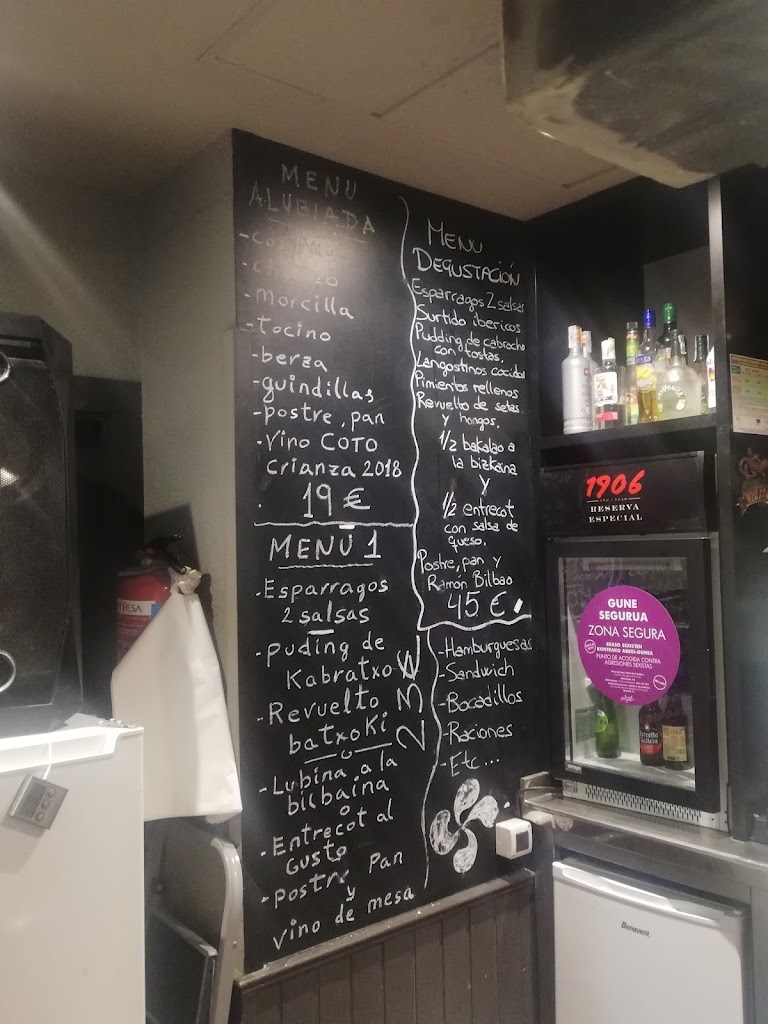 MENU
ALUBIADA
- morcilla
- Tocino
- berza
- guindillas
- postre, pan
- Vino COTO
crianza 2018
19 €
MENU 1
- Esparragos
2 salsas
- puding de
Kabratxo
- Revuelto
batxoki
- Lubina a la
bilbaina
o
- Entrecot al
Gusto
- postre pan
y
vino de mesa
23 €
MENU
DEGUSTACIÓN
Esparragos 2 salsas
Surtido ibericos
Pudding de cabracho
con tostas,
Langostinos cocidos
Pimientos rellenos
Revuelto de setas
y hongos.
1/2 bakalao a
la bizkaina
y
1/2 entrecot
con salsa de
queso.
Postre, pan y
Ramón Bilbao
45 €
- Hamburguesas
- Sandwich
- Bocadillos
- Raciones
- Etc...
1906
RESERVA
ESPECIAL
GUNE
SEGURUA
ZONA SEGURA
ERASO SEXISTEN
KONTRAKO ARRERA-GUNEA
PUNTO DE ACOGIDA CONTRA
AGRESIONES SEXISTAS
Estrella
Galicia
Benavent